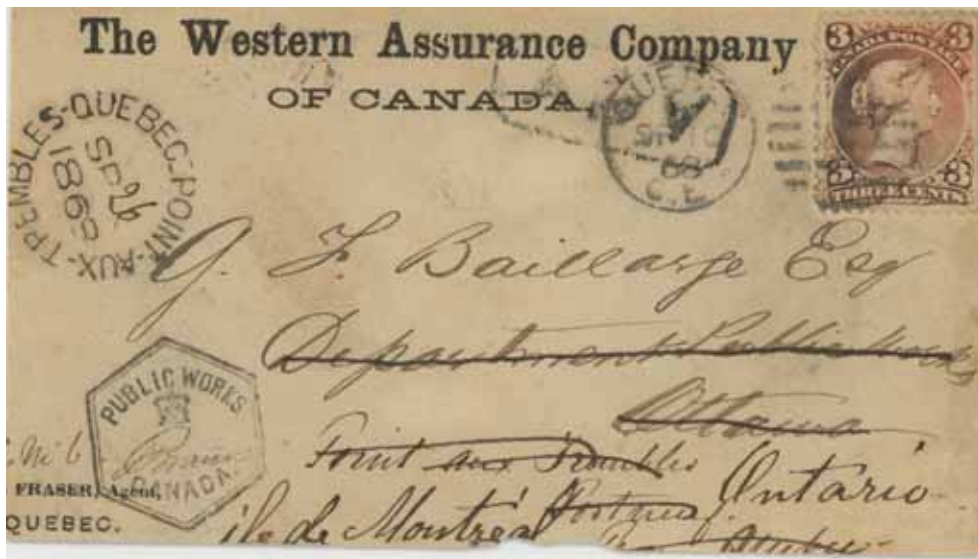 The Western Assurance Company
OF CANADA.
3 3
CANADA POSTAGE
3 3
THREE CENTS
QUEBEC
68
C.E
AUX. TREMBLES-QUEBEC-POINT.
SP 26
1868
G. F. Baillarge Esq
Department Public Works
Ottawa
Point aux Trembles
Ontario
île de Montréal
PUBLIC WORKS
CANADA
FRASER, Agent,
QUEBEC.